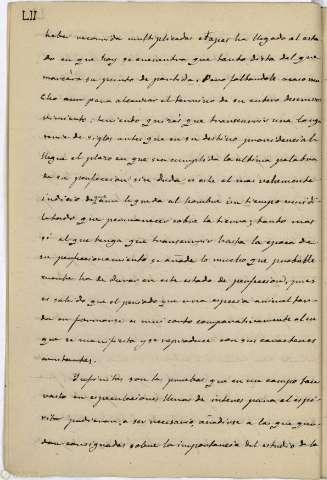 LII
haber recorrido multiplicadas etapas ha llegado al esta
do en que hoy se encuentra, que tanto dista del que
marcára su punto de partida. Pero faltandole acaso mu
cho aun para alcanzar el termino de su entero desenvol
vimiento; teniendo quizás que transcurrir una larga
serie de siglos antes que en su destino providencial
llegue el plazo en que sea cumplida la ultima palabra
de su perfeccion sin duda, es este el mas vehemente
indicio de que le queda al hombre un tiempo muy di
latado que permanecer sobre la tierra; tanto mas
si al que tenga que transcurrir hasta la epoca de
su perfeccionamiento se añade lo mucho que probable
mente ha de durar en este estado de perfeccion, pues
es sabido que el periodo que una especie animal tar
da en formarse es muy corto comparativamente al en
que se manifiesta y se reproduce con sus caracteres
constantes.
Infinitas son las pruebas que en un campo tan
vasto en especulaciones llenas de interes para el espi
ritu pudieran, a ser necesario, añadirse a las que que
dan consignadas sobre la importancia del estudio de la